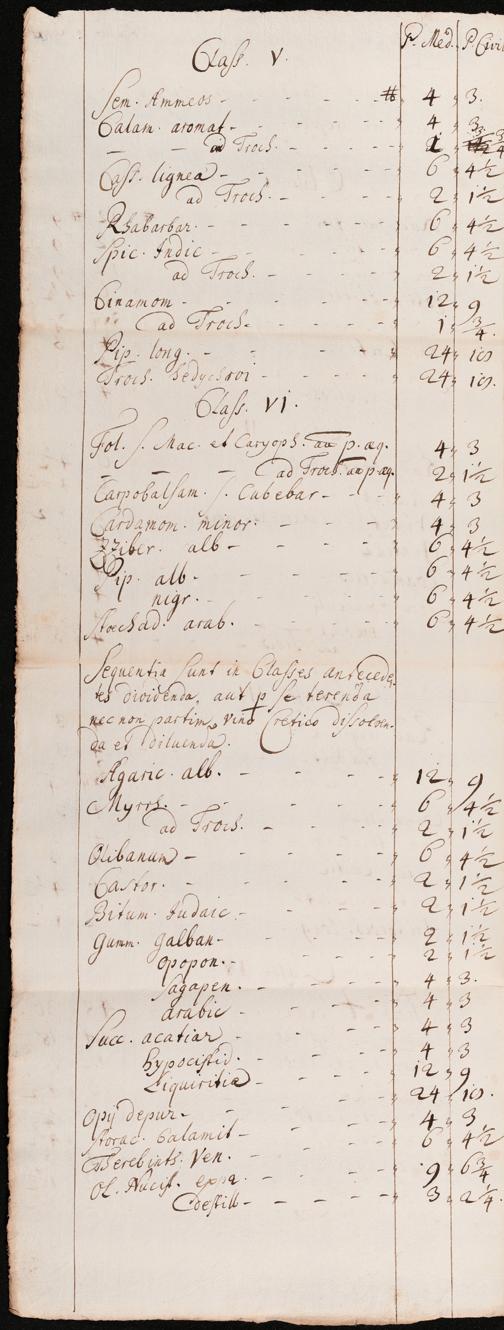 P. Med. P. Civil
Class. V.
Sem. Ammeos - - - - - ℔ 4 3.
Calam. aromat - - - - 4 3
- - ad Troch. - - -
Cass. lignea - - - - 6 4½
ad Troch. - - - 2 1½
Rhabarbar. - - - - 6 4½
Spic. Indic - - - - 6 4½
ad Troch. - - - 2 1½
Cinamom - - - - 12 9
ad Troch. - - - 1 ¾.
Pip. long. - - - - 24 18
Troch. hedychroi - - - 24 18.
Class. VI.
Fol. s. Mac. et Caryoph. an p. æq. 4 3
- - - ad Troch. an p. æq. 2 1½
Carpobalsam. s. Cubebar - - - 4 3
Cardamom. minor. - - - 4 3
Zziber. alb - - - - 6 4½
Pip. alb - - - - 6 4½
nigr. - - - - 6 4½
Stoechad. arab. - - - 6 4½
Sequentia sunt in Classes antecede-
tes dividenda, aut p se terenda
nec non partim vino Cretico dissolven-
da et diluenda.
Agaric. alb. - - - - 12 9
Myrrh. - - - - 6 4½
ad Troch. - - - 2 1½
Olibanum - - - - 6 4½
Castor. - - - - 2 1½
Bitum. Judaic. - - - 2 1½
Gumm. galban - - - 2 1½
opopon. - - - 2 1½
Sagapen. - - - 4 3.
arabic - - - 4 3
Succ. acatiæ - - - 4 3
hypocistid. - - - 4 3
Liquiritiæ - - - 12 9
Opij depur - - - - 24 18.
Storac. Calamit - - - 4 3
Therebinth. Ven. - - - 6 4½
Ol. Nucist. expr. - - - 9 6¾
destill - - - 3 2¼.